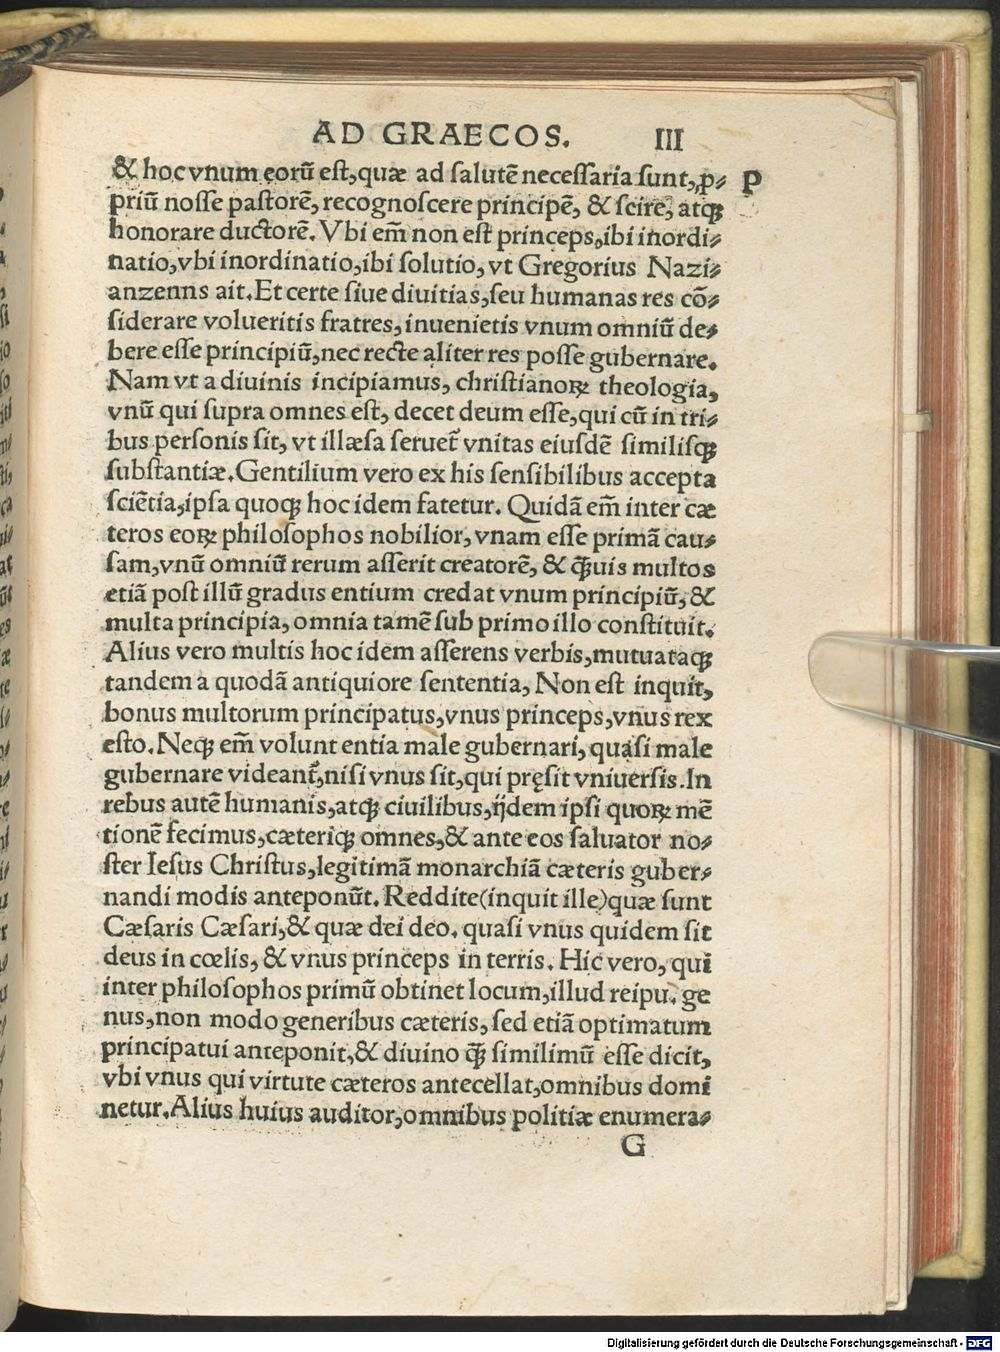 AD GRAECOS. III
& hoc vnum eorũ est, quæ ad salutẽ necessaria sunt, ꝓ- P
priũ nosse pastorẽ, recognoscere principẽ, & scire, atqꝫ
honorare ductorẽ. Vbi em̃ non est princeps, ibi inordi-
natio, vbi inordinatio, ibi solutio, vt Gregorius Nazi-
anzenns ait. Et certe siue diuitias, seu humanas res cõ-
siderare volueritis fratres, inuenietis vnum omniũ de-
bere esse principiũ, nec recte aliter res posse gubernare.
Nam vt a diuinis incipiamus, christianoꝝ theologia,
vnũ qui supra omnes est, decet deum esse, qui cũ in tri-
bus personis sit, vt illæsa seruet᷑ vnitas eiusdẽ similisqꝫ
substantiæ. Gentilium vero ex his sensibilibus accepta
sciẽtia, ipsa quoqꝫ hoc idem fatetur. Quidã em̃ inter cæ
teros eoꝝ philosophos nobilior, vnam esse primã cau-
sam, vnũ omniũ rerum asserit creatorẽ, & q̃uis multos
etiã post illũ gradus entium credat vnum principiũ, &
multa principia, omnia tamẽ sub primo illo constituit.
Alius vero multis hoc idem asserens verbis, mutuataqꝫ
tandem a quodã antiquiore sententia, Non est inquit,
bonus multorum principatus, vnus princeps, vnus rex
esto. Neqꝫ em̃ volunt entia male gubernari, quasi male
gubernare videant᷑, nisi vnus sit, qui pręsit vniuersis. In
rebus autẽ humanis, atqꝫ ciuilibus, ijdem ipsi quoꝝ mẽ
tionẽ fecimus, cæteriqꝫ omnes, & ante eos saluator no-
ster Iesus Christus, legitimã monarchiã cæteris guber-
nandi modis anteponũt. Reddite (inquit ille) quæ sunt
Cæsaris Cæsari, & quæ dei deo. quasi vnus quidem sit
deus in cœlis, & vnus princeps in terris. Hic vero, qui
inter philosophos primũ obtinet locum, illud reipu. ge
nus, non modo generibus cæteris, sed etiã optimatum
principatui anteponit, & diuino q̃ similimũ esse dicit,
vbi vnus qui virtute cæteros antecellat, omnibus domi
netur. Alius huius auditor, omnibus politiæ enumera-
G
Digitalisierung gefördert durch die Deutsche Forschungsgemeinschaft - DFG